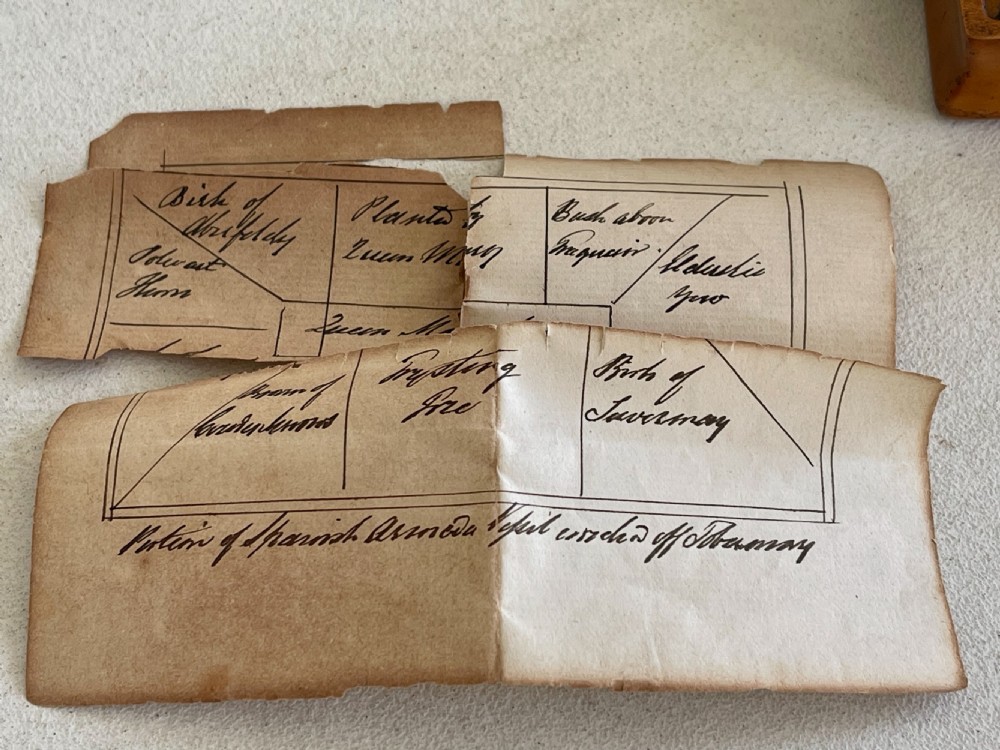 Birk of
Aberfeldy
Planted by
Queen Mary
Bush aboon
Traquair
Polwart
Thorn
Elderslie
Yew
Queen Ma
Broom of
Cowdenknows
Trysting
Tree
Birk of
Invermay
Portion of Spanish Armada Vessel wrecked off Tobermory